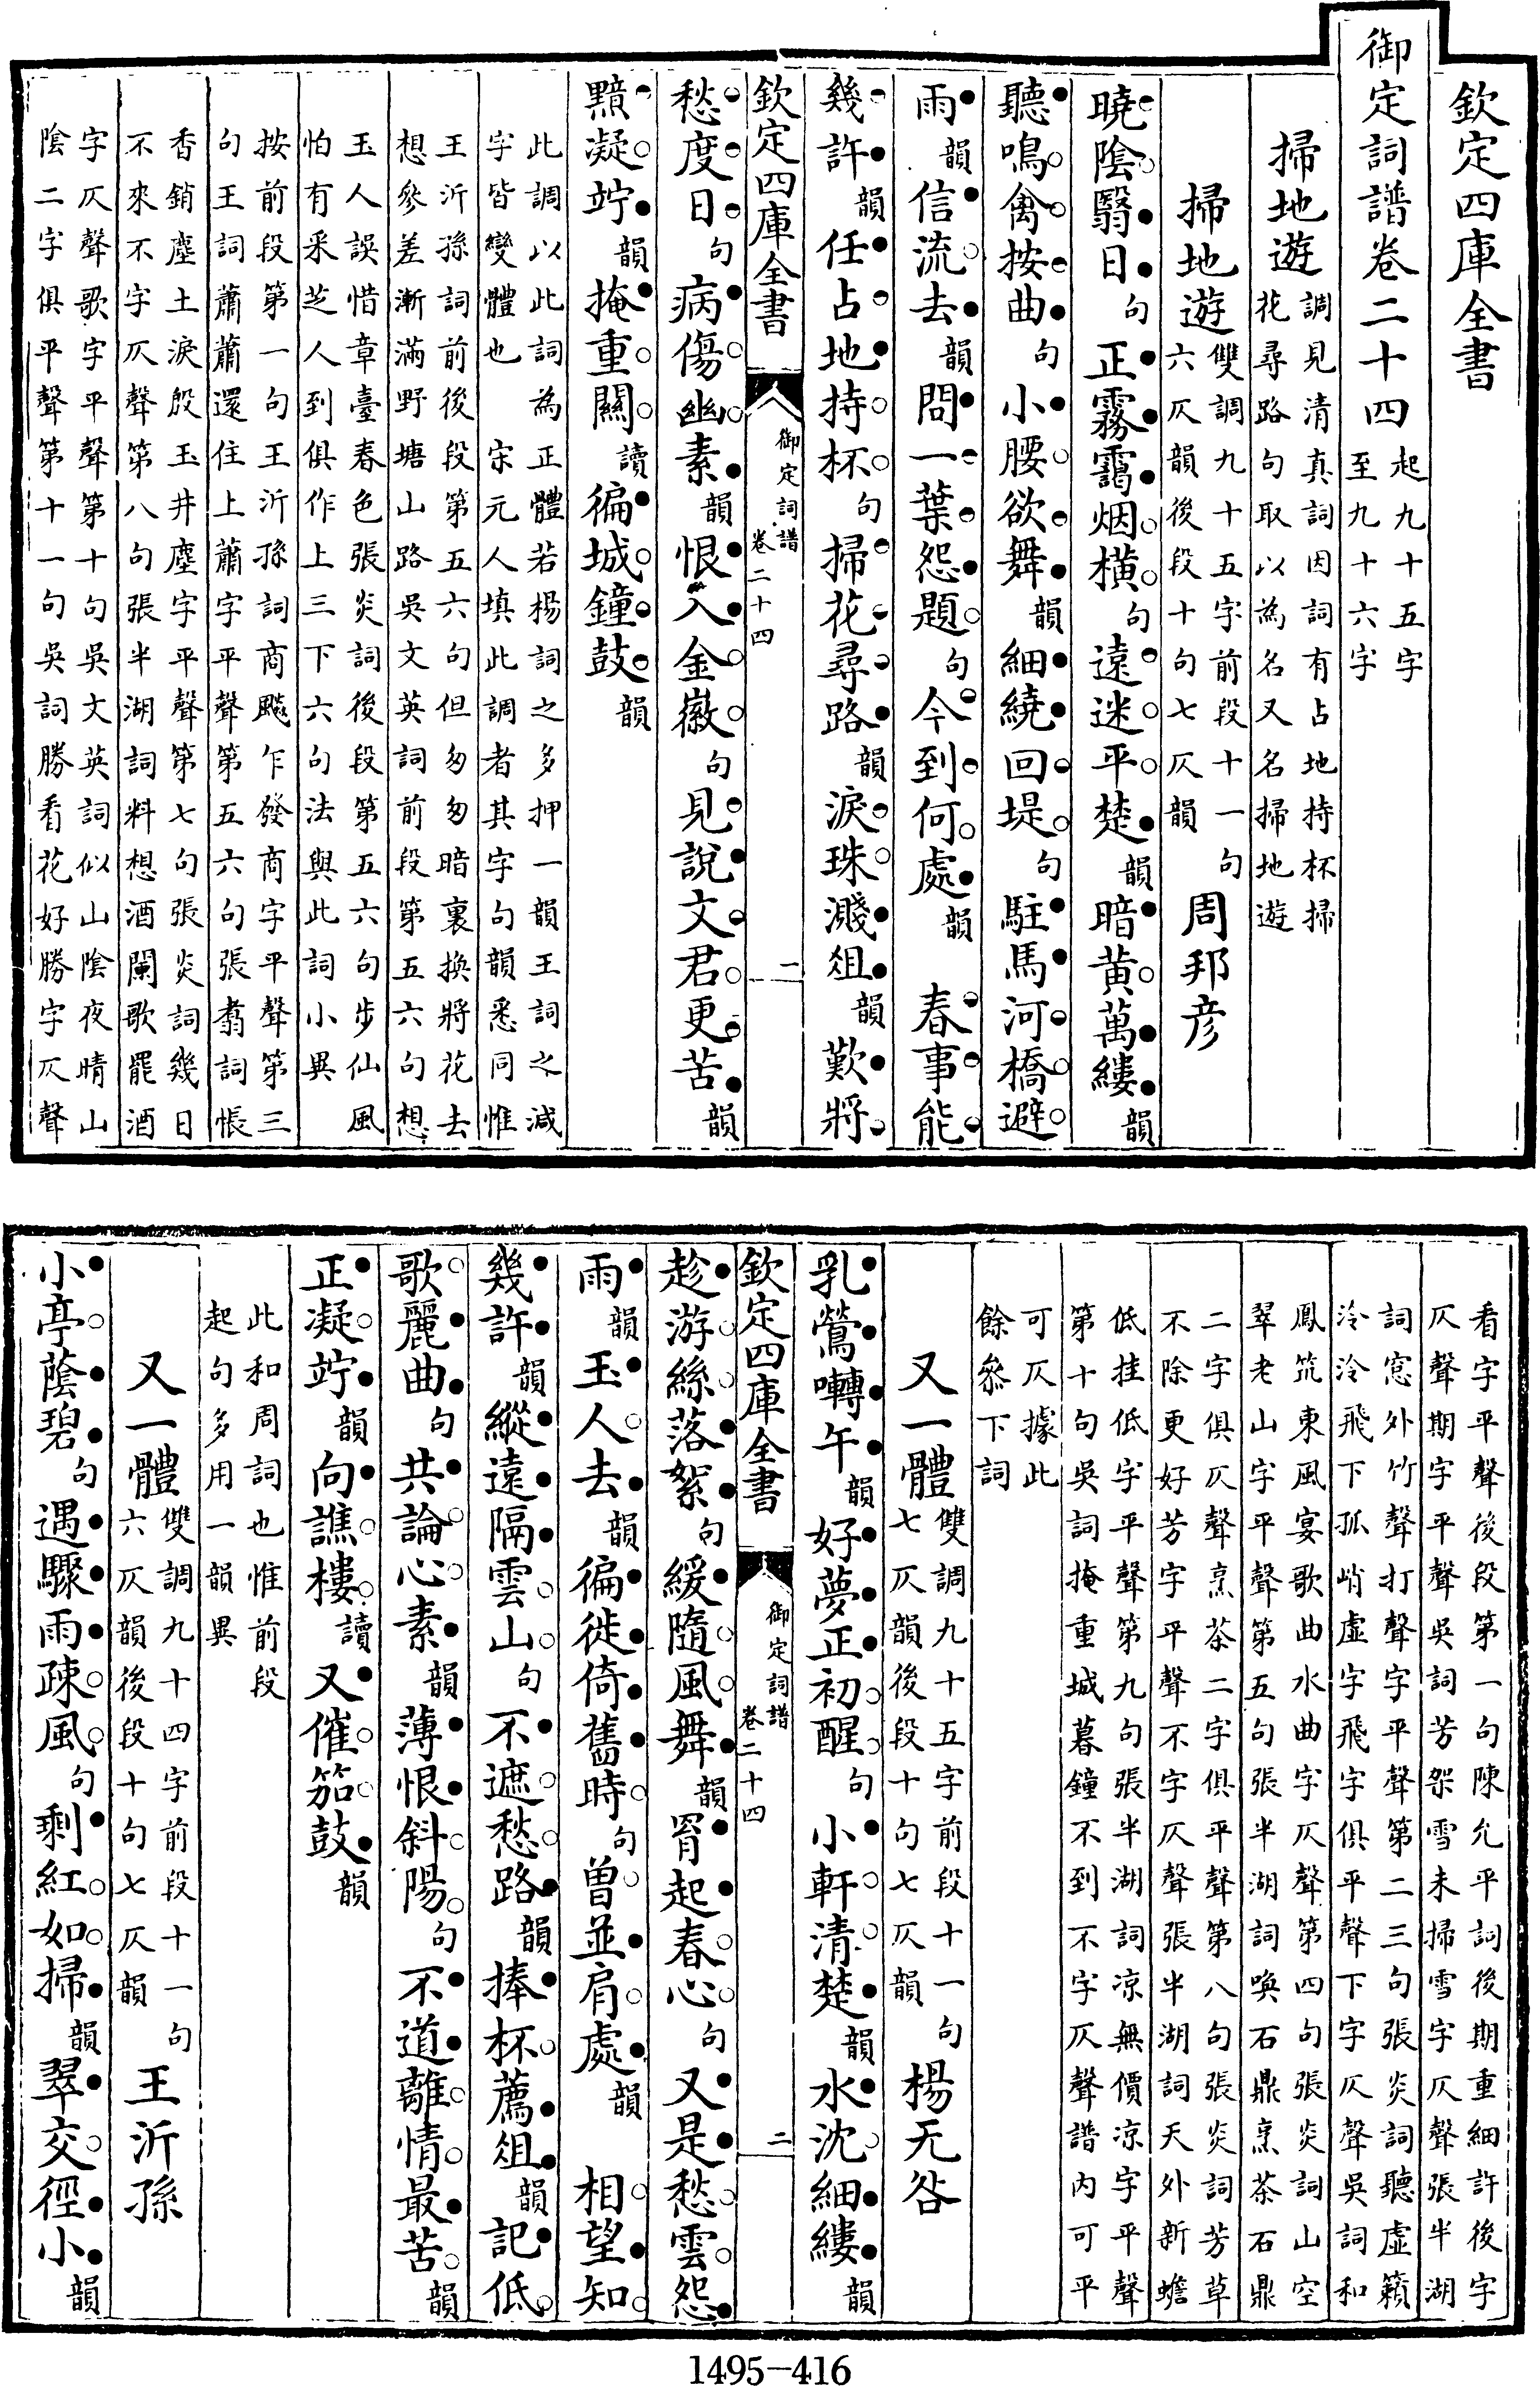 欽定四庫全書
御定詞譜卷二十四起九十五字至九十六字
掃地遊調見清真詞因詞有占地持杯掃花尋路句取以為名又名掃地遊
掃地遊雙調九十五字前段十一句六仄韻後段十句七仄韻 周邦彦
曉陰翳日句正霧靄烟橫句遠迷平楚韻暗黃萬縷韻
聽鳴禽按曲句小腰欲舞韻細繞回堤句駐馬河橋避
雨韻信流去韻問一葉怨題句今到何處韻 春事能
幾許韻任占地持杯句掃花尋路韻淚珠濺俎韻歎將
欽定四庫全書 御定詞譜卷二十四 一
愁度日句病傷幽素韻恨入金徽句見說文君更苦韻
黯凝竚韻掩重關讀徧城鐘鼓韻
此調以此詞為正體若楊詞之多押一韻王詞之減
字皆變體也 宋元人填此調者其字句韻悉同惟
王沂孫詞前後段第五六句但匆匆暗裏換將花去
想參差漸滿野塘山路吳文英詞前段第五六句想
玉人誤惜章臺春色張炎詞後段第五六句步仙風
怕有采芝人到俱作上三下六句法與此詞小異
按前段第一句王沂孫詞商飈乍發商字平聲第三
句王詞蕭蕭還住上蕭字平聲第五六句張翥詞悵
香銷塵土淚殷玉井塵字平聲第七句張炎詞幾日
不來不字仄聲第八句張半湖詞料想酒闌歌罷酒
字仄聲歌字平聲第十句吳文英詞似山陰夜晴山
陰二字俱平聲第十一句吳詞勝看花好勝字仄聲
看字平聲後段第一句陳允平詞後期重細許後字
仄聲期字平聲吳詞芳架雪未掃雪字仄聲張半湖
詞窓外竹聲打聲字平聲第二三句張炎詞聽虛籟
泠泠飛下孤峭虛字飛字俱平聲下字仄聲吳詞和
鳳筑東風宴歌曲水曲字仄聲第四句張炎詞山空
翠老山字平聲第五句張半湖詞喚石鼎烹茶石鼎
二字俱仄聲烹茶二字俱平聲第八句張炎詞芳草
不除更好芳字平聲不字仄聲張半湖詞天外新蟾
低挂低字平聲第九句張半湖詞凉無價凉字平聲
第十句吳詞掩重城暮鐘不到不字仄聲譜內可平
可仄據此
餘叅下詞
又一體雙調九十五字前段十一句七仄韻後段十句七仄韻 楊无咎
乳鶯囀午韻好夢正初醒句小軒清楚韻水沈細縷韻
欽定四庫全書 御定詞譜卷二十四 二
趁游絲落絮句緩隨風舞韻胥起春心句又是愁雲怨
雨韻玉人去韻徧徙倚舊時句曾並肩處韻 相望知
幾許韻縱遠隔雲山句不遮愁路韻捧杯薦俎韻記低
歌麗曲句共論心素韻薄恨斜陽句不道離情最苦韻
正凝竚韻向譙樓讀又催笳鼓韻
此和周詞也惟前段
起句多用一韻異
又一體雙調九十四字前段十一句六仄韻後段十句七仄韻 王沂孫
小亭蔭碧句遇驟雨疎風句剩紅如掃韻翠交徑小韻
1495-416